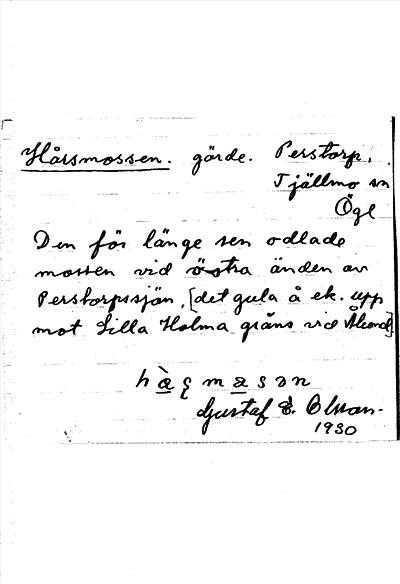 Hårsmossen. gärde. Perstorp,
Tjällmo sn
Ögl
Den för länge sen odlade
mossen vid östra änden av
Perstorpssjön, [det gula å ek. upp
mot Lilla Holma gräns vid
h à ʂ m a s ə n
Gustaf E. Olsson.
1930